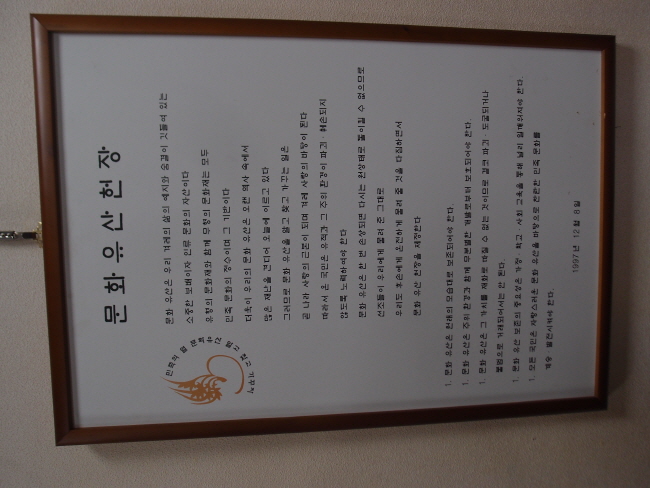 문화유산헌장
민족의 얼 문화유산 알고 찾고 가꾸자
문화 유산은 우리 겨레의 삶의 예지와 숨결이 깃들여 있는
소중한 보배이자 인류 문화의 자산이다
유형의 문화재와 함께 무형의 문화재는 모두
민족 문화의 정수이며 그 기반이다
더욱이 우리의 문화 유산은 오랜 역사 속에서
많은 재난을 견디어 오늘에 이르고 있다
그러므로 문화 유산을 알고 찾고 가꾸는 일은
곧 나라 사랑의 근본이 되며 겨레 사랑의 바탕이 된다
따라서 온 국민은 유적과 그 주위 환경이 파괴·훼손되지
않도록 노력하여야 한다
문화 유산은 한 번 손상되면 다시는 원상태로 돌이킬 수 없으므로
선조들이 우리에게 물려 준 그대로
우리도 후손에게 온전하게 물려 줄 것을 다짐하면서
문화 유산 헌장을 제정한다
1. 문화 유산은 원래의 모습대로 보존되어야 한다.
1. 문화 유산은 주위 환경과 함께 무분별한 개발로부터 보호되어야 한다.
1. 문화 유산은 그 가치를 재화로 따질 수 없는 것이므로 결코 파괴·도굴되거나
불법으로 거래되어서는 안 된다.
1. 문화 유산 보존의 중요성은 가정·학교·사회 교육을 통해 널리 일깨워져야 한다.
1. 모든 국민은 자랑스러운 문화 유산을 바탕으로 찬란한 민족 문화를
계승·발전시켜야 한다.
1997년 12월 8일